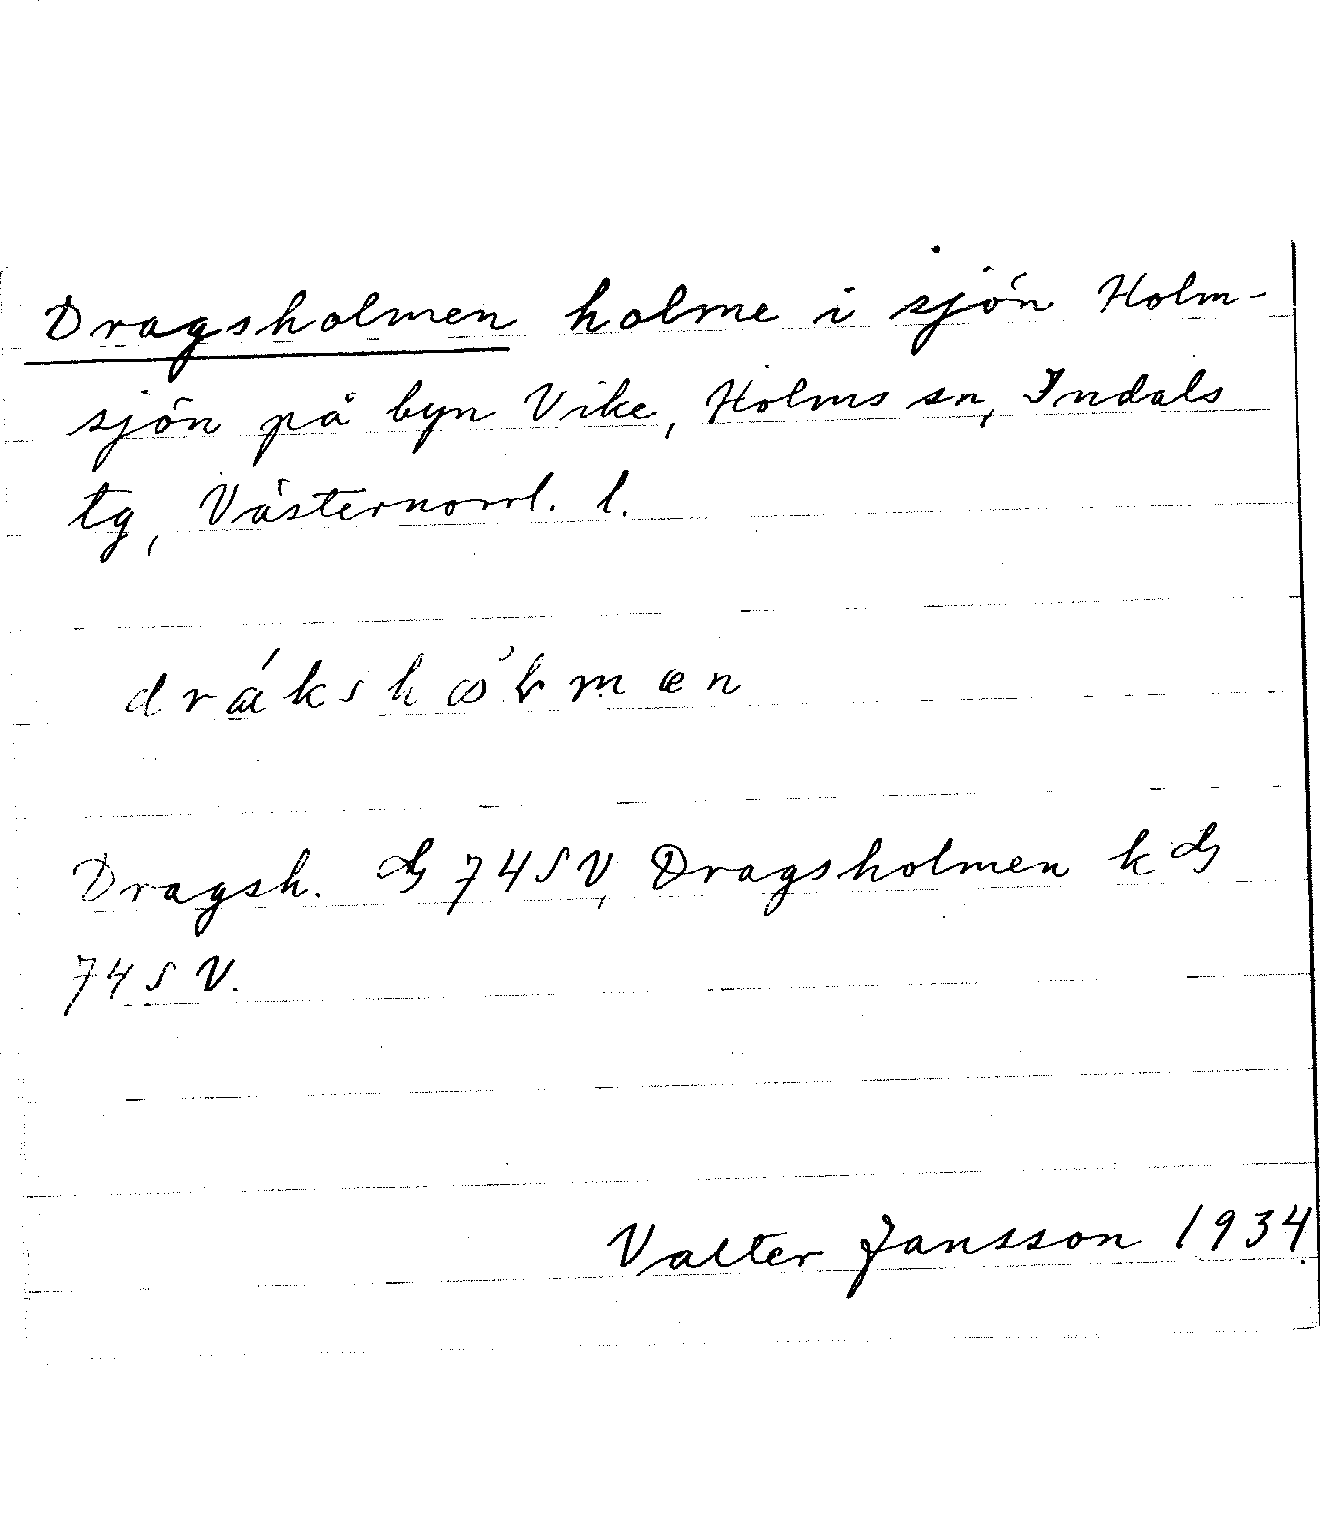 Dragsholmen holme i sjön Holm-
sjön på byn Vike, Holms sn, Indals
tg, Västernorrl. l.
Dragsh. 74 SV, Dragsholmen k
74 SV.
Valter Jansson 1934